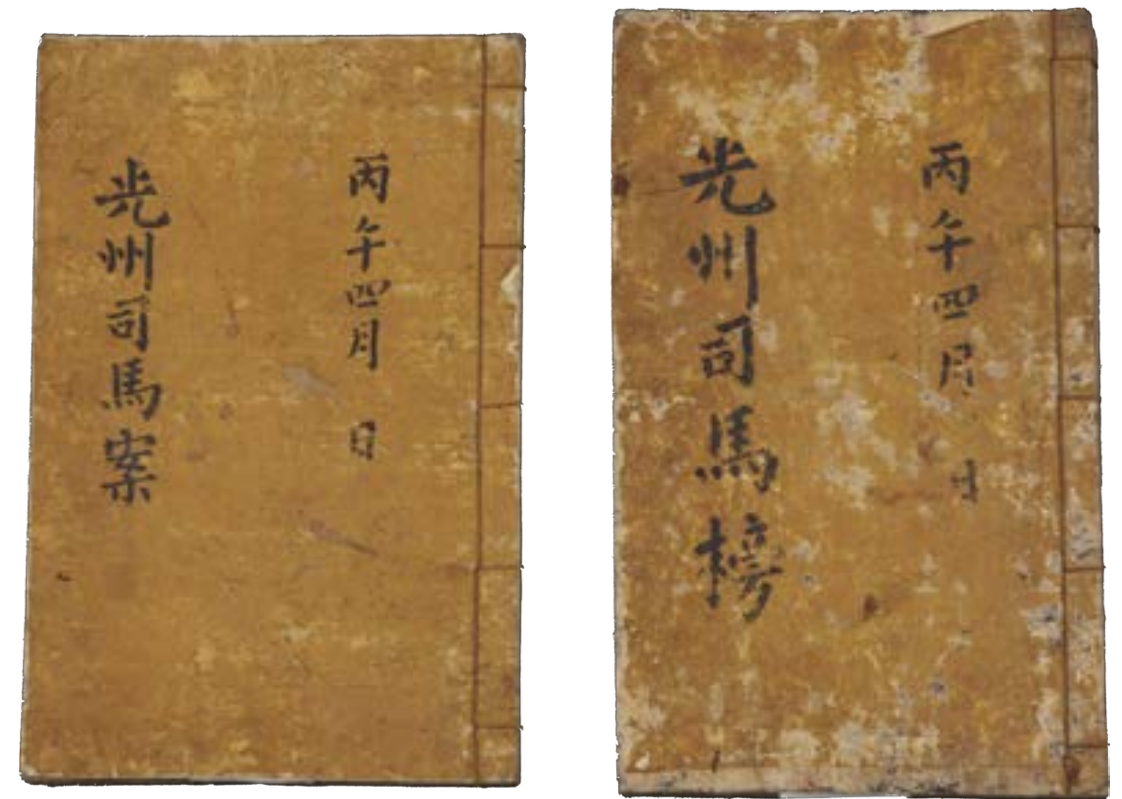 丙午四月 日
光州司馬案
丙午四月 日
光州司馬榜